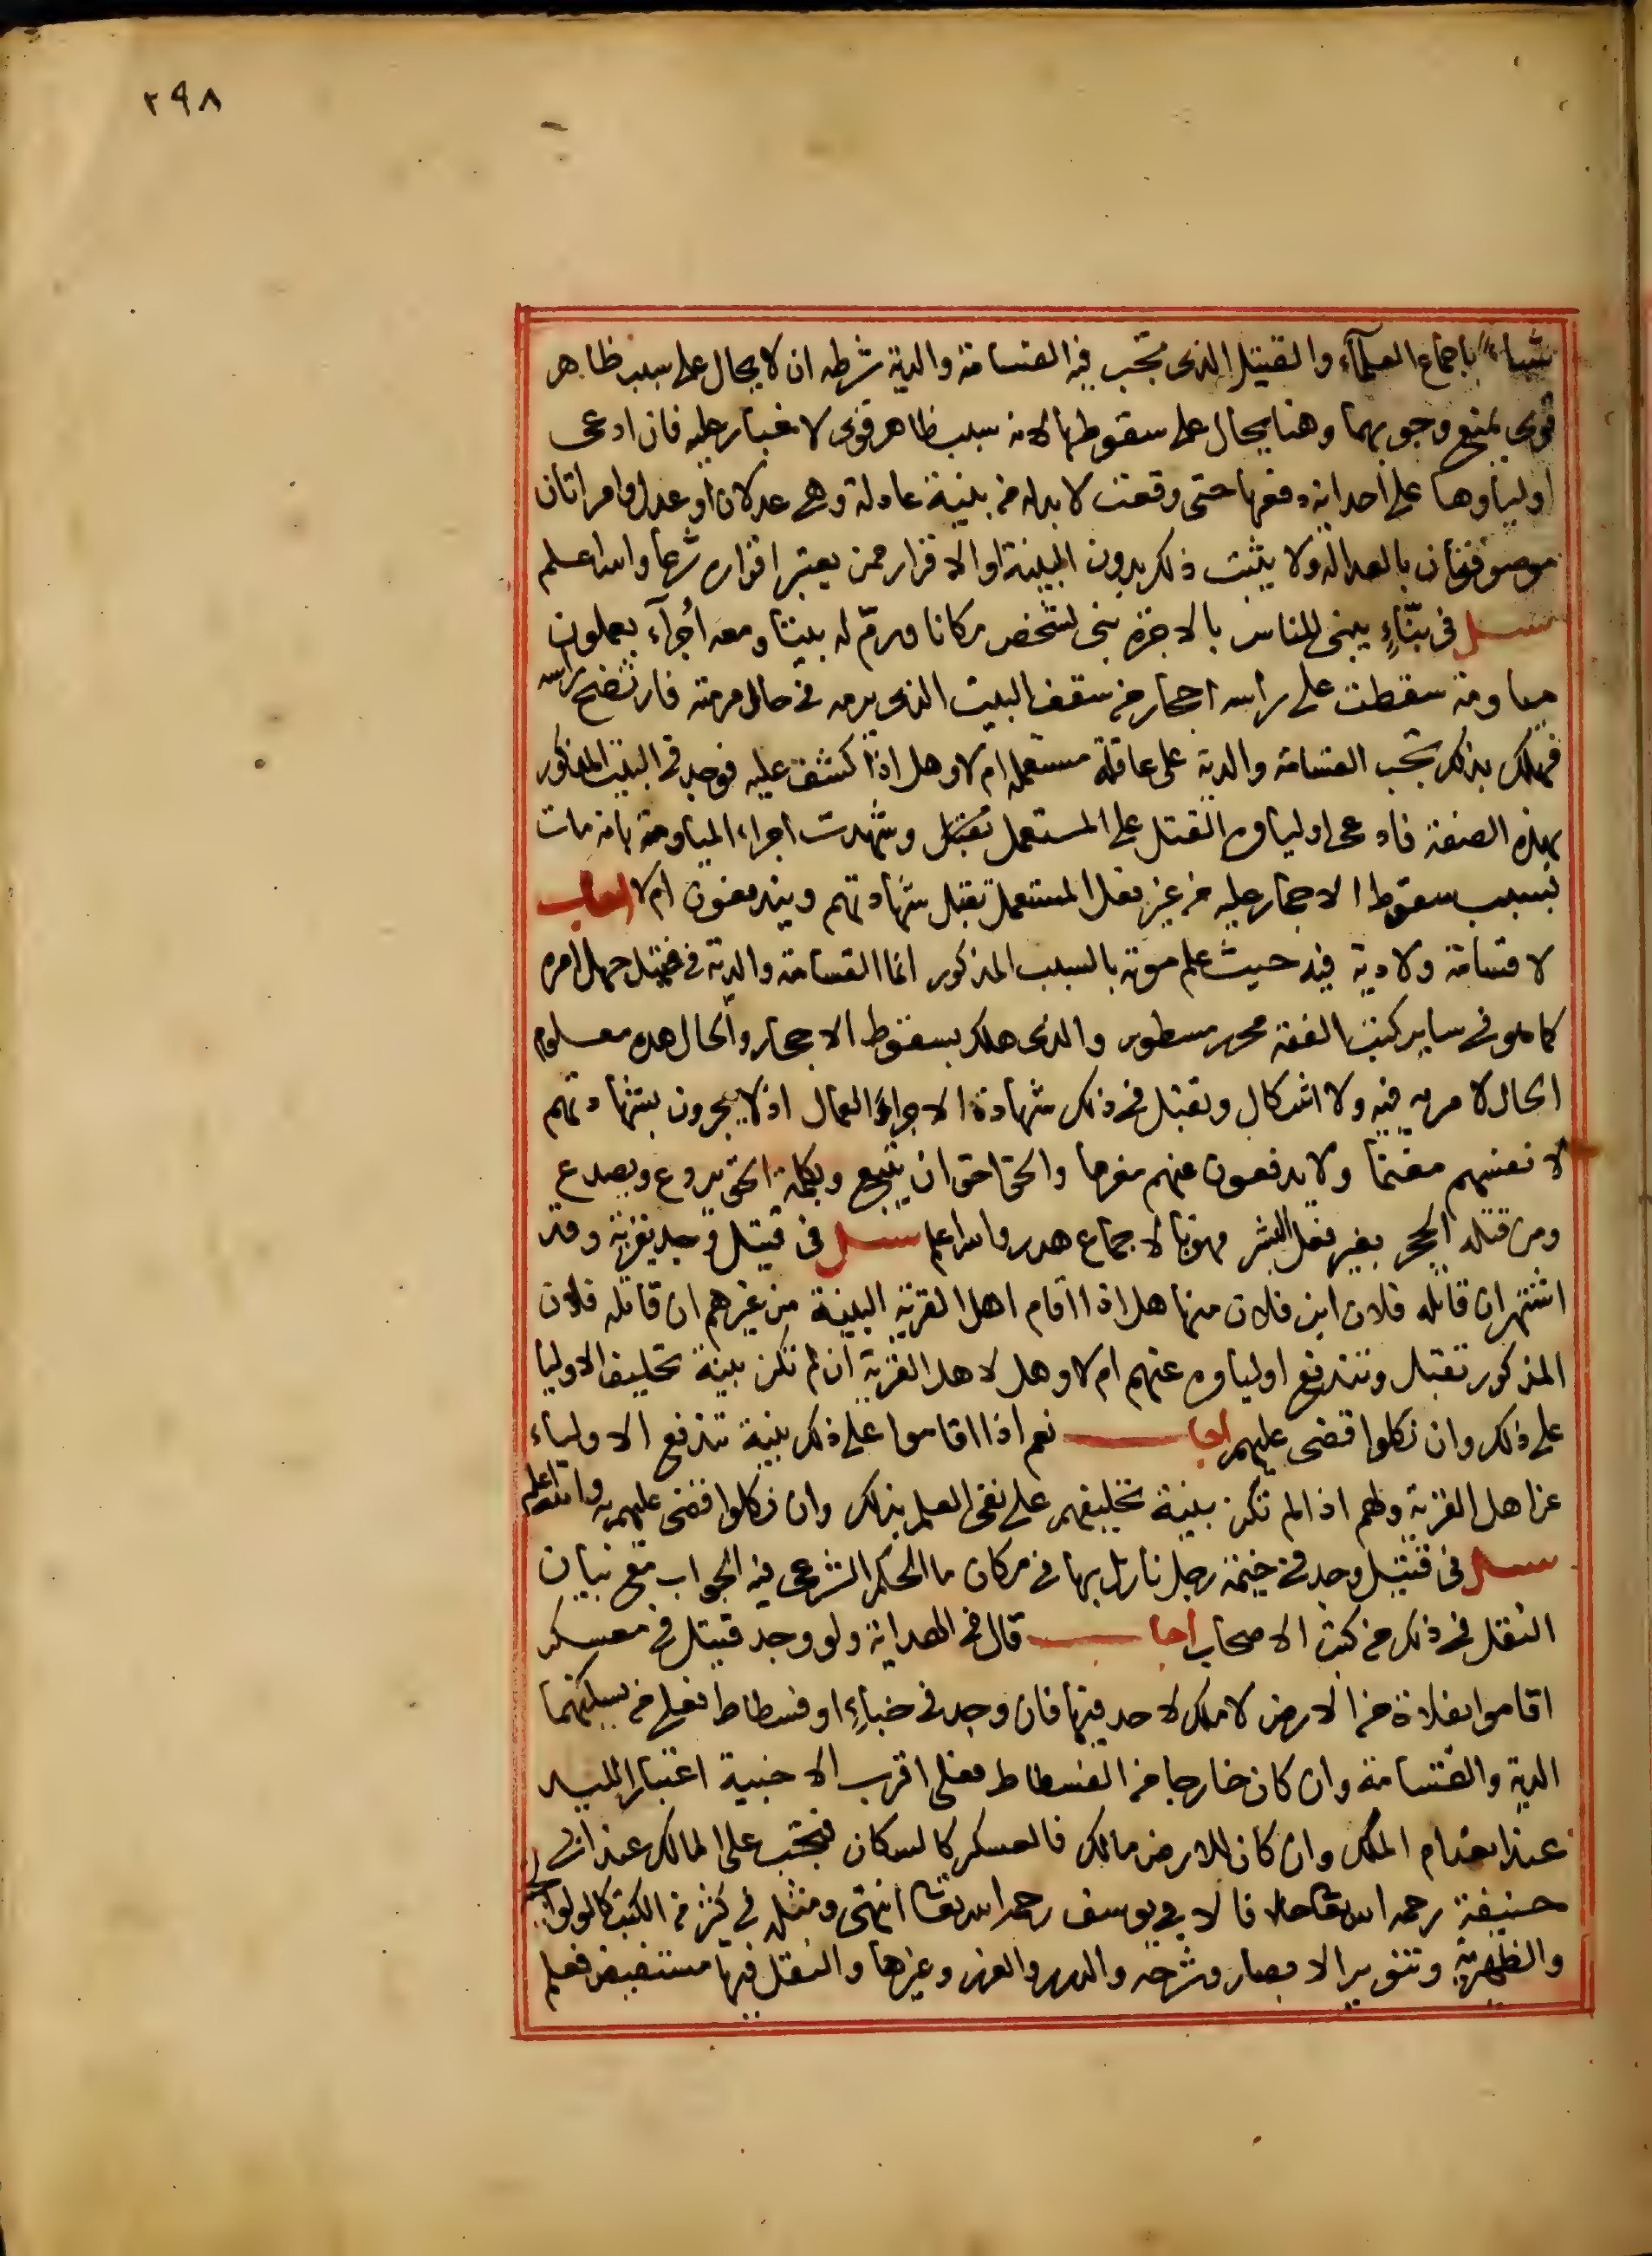 ٢٩٨
شاء باجماع العلماء والقتيل الذى تجب فيه القسامة والدية شرطه ان لا يحال على سبب ظاهر
قوى يمنع وجوبهما وهنا يحال على سقوطها لانه سبب ظاهر قوى لا غبار عليه فان ادعى
اولياوها على احد انه دفعها حتى وقعت لا بد له من بينة عادلة وهى عدلان او عدل وامراتان
موصوفان بالعدالة ولا يثبت ذلك بدون البينة او الاقرار ممن يعتبر اقراره شرعا والله اعلم
سئل فى بنّاءٍ يبنى للناس بالاجرة بنى لشخص مكانا ورمّ له بيتا ومعه أجرآء يعملون
مياومة سقطت على راسه احجار من سقف البيت الذى يرمه فى حال مرمته فارتضخ راسه
فهلك بذلك تجب القسامة والدية على عاقلة مستعمله ام لا وهل اذا كشف عليه فوجد فى البيت المذكور
بهذه الصفة فادعى اولياوه القتل على المستعمل تقبل وشهدت اجراء المياومة بانه مات
بسبب سقوط الاحجار عليه من غير فعل المستعمل تقبل شهادتهم ويندفعون ام لا اجاب
لا قسامة ولا دية فيه حيث علم موته بالسبب المذكور انما القسامة والدية فى قتيل جهل امره
كما هو فى ساير كتب الفقه محرر مسطور والذى هلك بسقوط الاحجار والحال هذه معلوم
الحال لا مرية فيه ولا اشكال وتقبل فى ذلك شهادة الاجراء العمال اذ لا يجرون بشهادتهم
لانفسهم مغنما ولا يدفعون عنهم مغرما والحق احق ان يتبع وبكلمة الحق يردع ويصدع
ومن قتله الحجر بغير فعل البشر فهو بالاجماع هدر والله اعلم سئل فى قتيل وجد بقرية وقد
اشتهر ان قاتله فلان ابن فلان منها هل اذا اقام اهل القرية البينة من غيرهم ان قاتله فلان
المذكور تقبل وتندفع اولياوه عنهم ام لا وهل لاهل القرية ان لم تكن بينة تحليف الاوليا
على ذلك وان نكلوا قضى عليهم اجاب نعم اذا اقاموا على ذلك بينة تندفع الاولياء
عن اهل القرية ولهم اذا لم تكن بينة تحليفهم على نفى العلم بذلك وان نكلوا قضى عليهم به والله اعلم
سئل فى قتيل وجد فى خيمة رجل نازل بها فى مكان ما الحكم الشرعى فيه الجواب مع بيان
النقل فى ذلك من كتب الاصحاب اجاب قال فى الهداية ولو وجد قتيل فى معسكر
اقاموا بفلاة من الارض لا ملك لاحد فيها فان وجد فى خباءٍ او فسطاط فعلى من يسكنهما
الدية والقسامة وان كان خارجا من الفسطاط فعلى اقرب الاخبية اعتبارا لليد
عند انعدام الملك وان كان للارض مالك فالعسكر كالسكان فيجب على المالك عند ابى
حنيفة رحمه الله تعالى خلافا لابى يوسف رحمه الله تعالى انتهى ومثله فى كثير من الكتب كالولوالجية
والظهيرية وتنوير الابصار وشرحه والدرر والغرر وغيرها والنقل فيها مستفيض فعلم